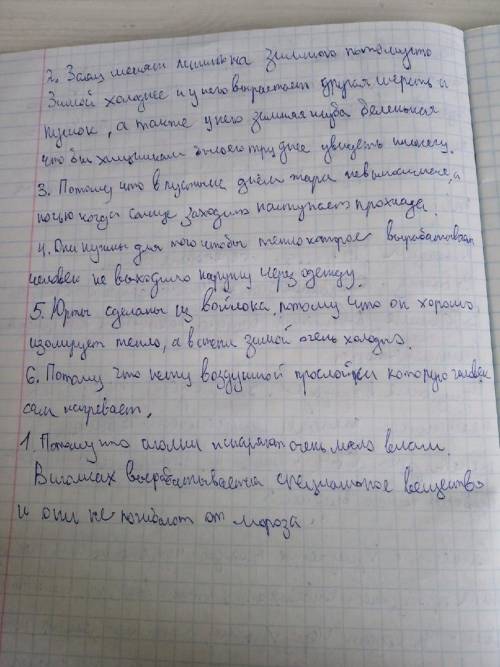 2. Заяц меняет на зимнюю потомушто
Зимой холоднее и у него вырастает другая шерсть и
пушок, а также у него зимняя шуба беленькая
что бы хищникам было труднее увидеть
3. Потому что в пустыне днём жара невыносимая, а
ночью когда солнце заходит наступает прохлада.
4. Они нужны для того чтобы тепло которое вырабатывает
человек не выходило наружу через одежду.
5. Юрты сделаны из войлока, потому что он хорошо
изолирует тепло, а в степи зимой очень холодно.
6. Потому что нету воздушной прослойки которую человек
сам нагревает.
1. Потому что иголки испаряют очень мало влаги.
В иголках вырабатывается специальное вещество
и они не погибают от мороза